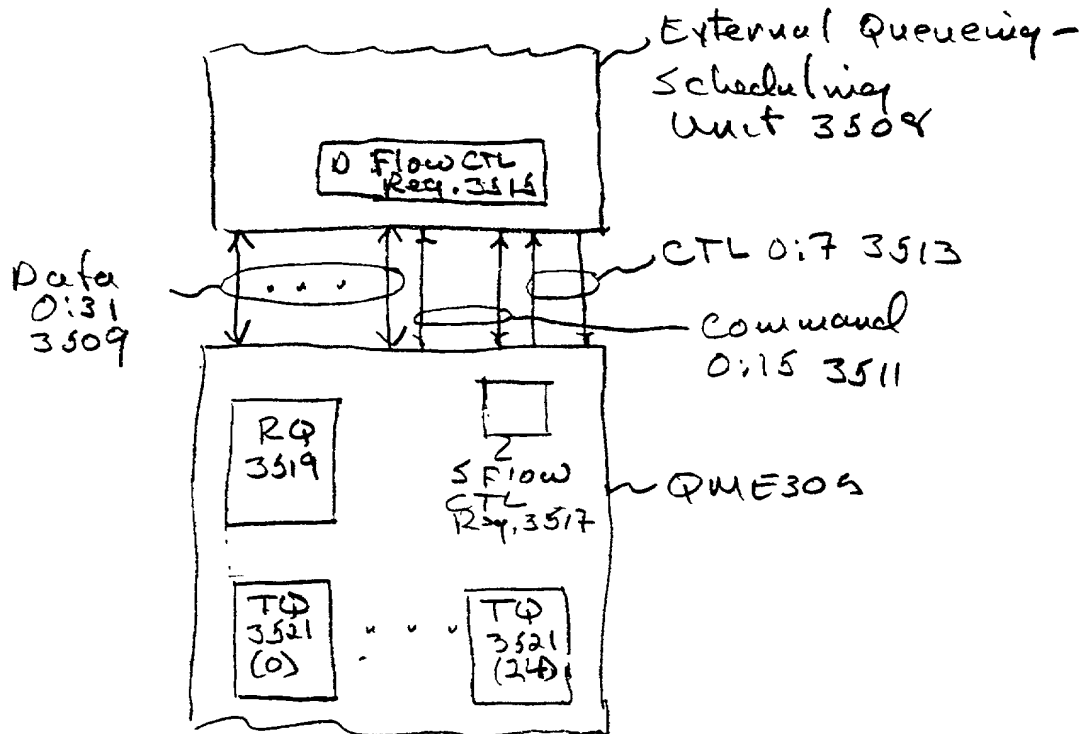 External Queueing-
Scheduling
Unit 3508
D Flow CTL
Reg. 3515
CTL 0:7 3513
Data
0:31
3509
Command
0:15 3511
RQ
3519
S Flow
CTL
Reg. 3517
QME305
TQ
3521
(0)
TQ
3521
(24)